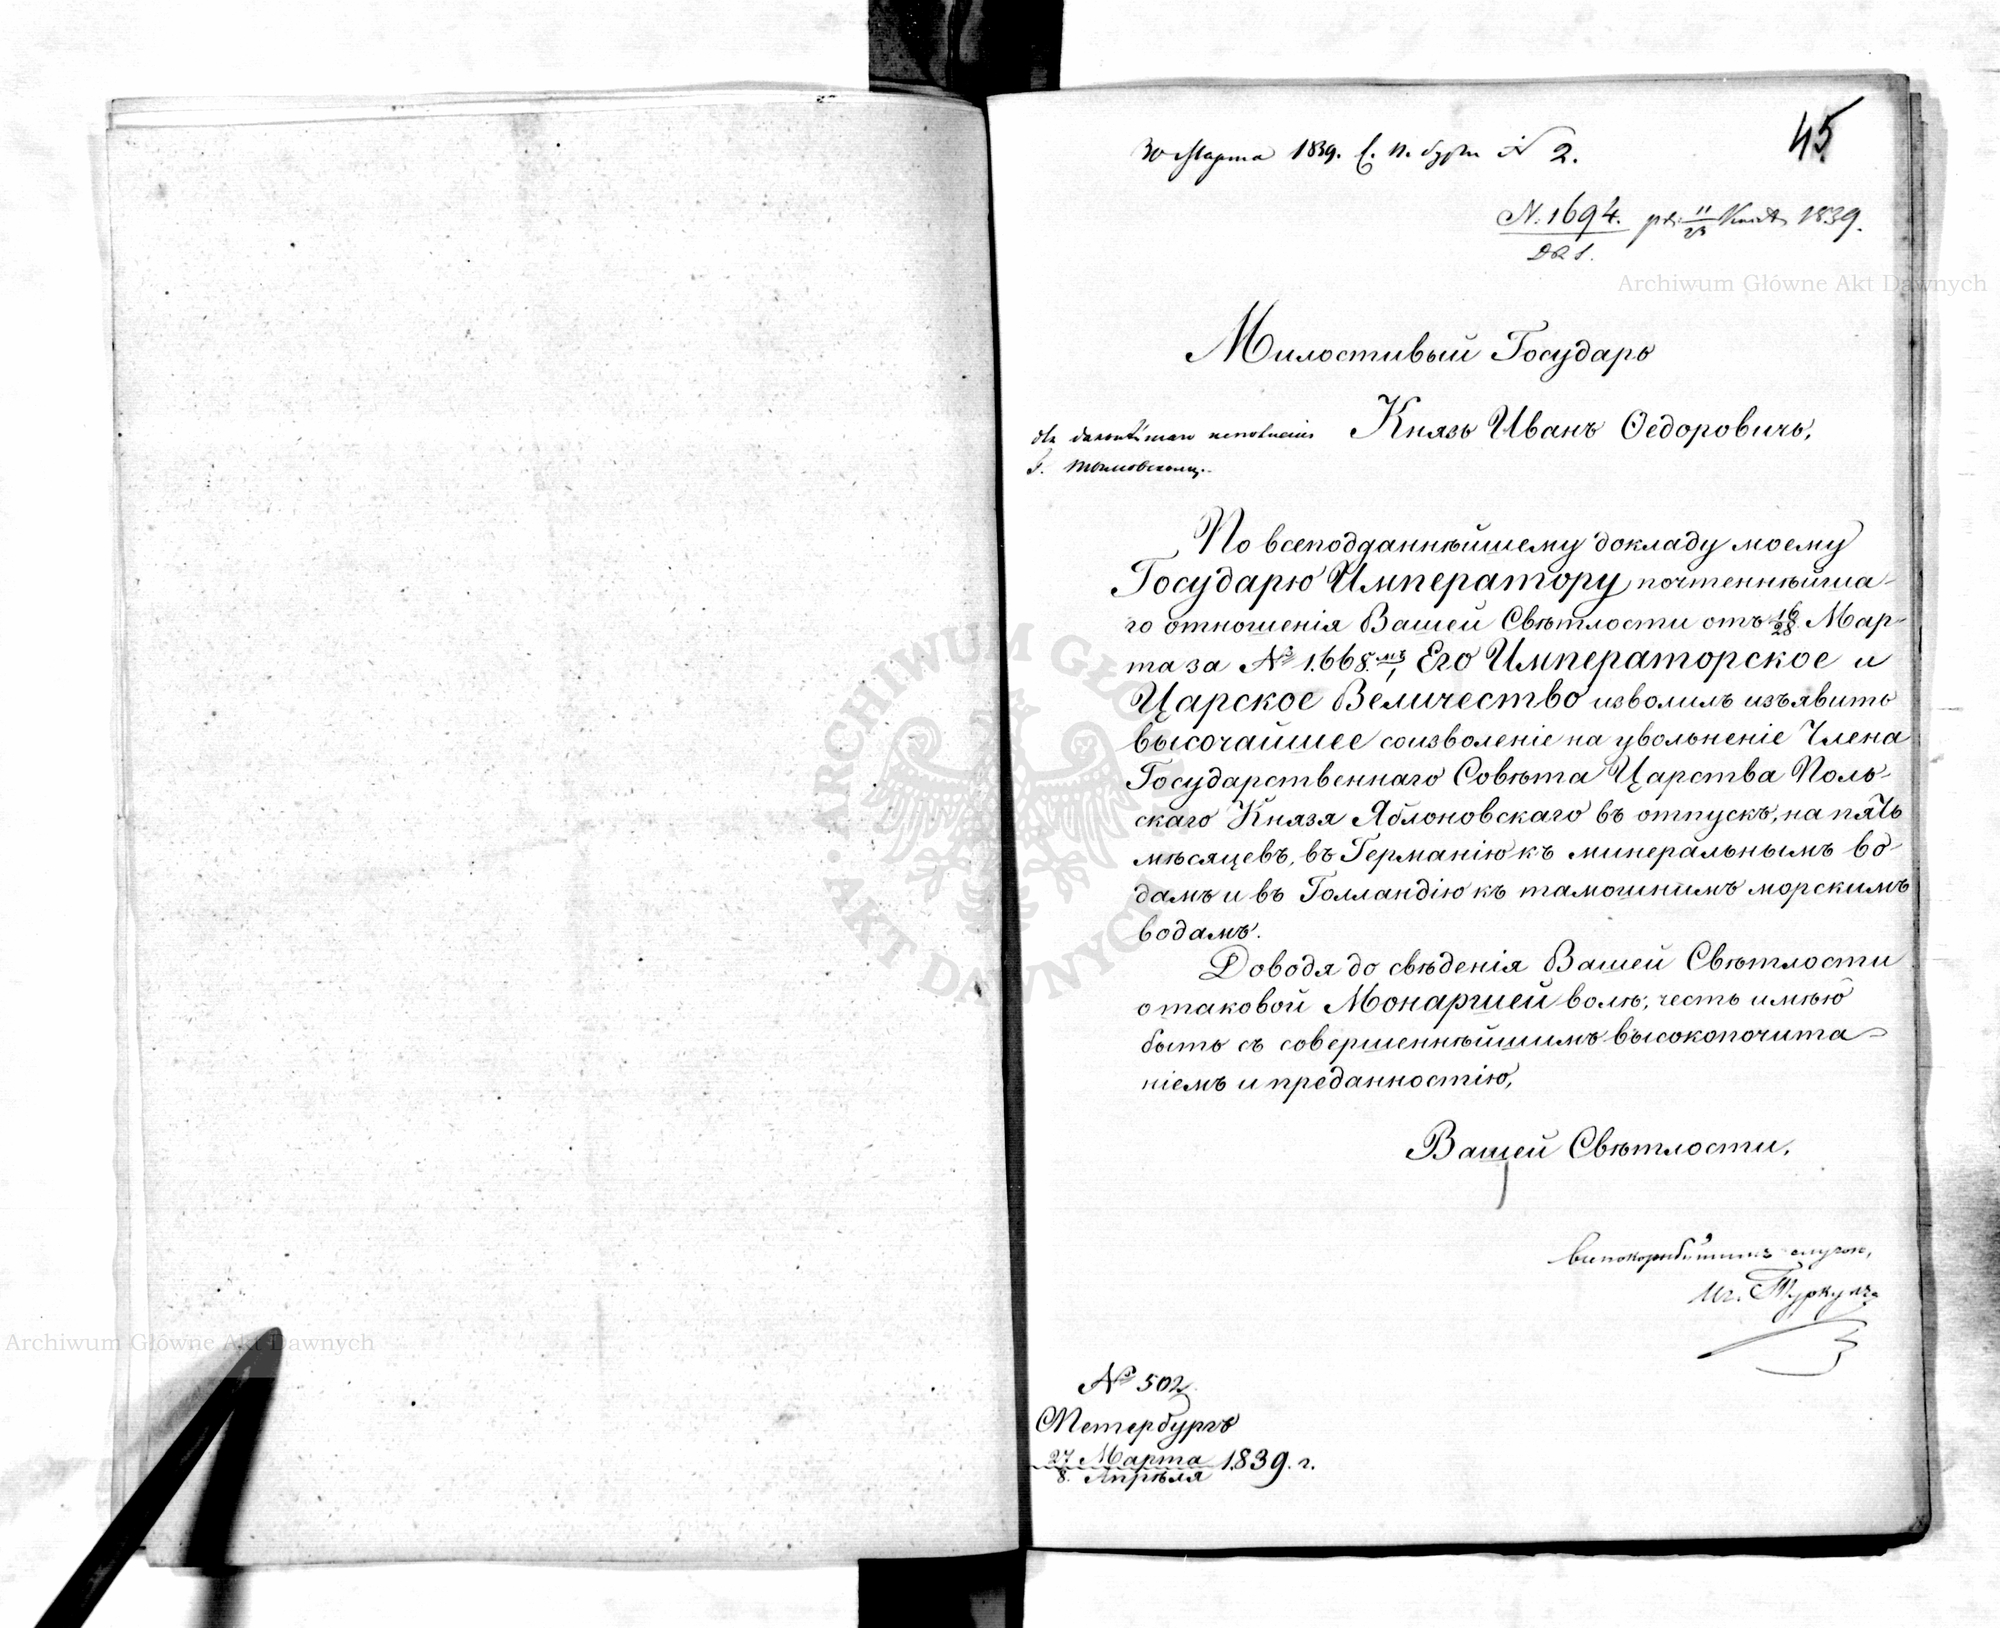 45
30 Марта 1839. С. П. бургъ № 2.
N. 1694. 11/23 1839.
Милостивый Государь
Князь Иванъ Ѳедоровичъ,
По всеподданнѣйшему докладу моему
Государю Императору почтеннѣйша-
го отношенія Вашей Свѣтлости отъ 16/28 Мар-
та за № 1.668. Его Императорское и
Царское Величество изволилъ изъявить
высочайшее соизволеніе на увольненіе Члена
Государственнаго Совѣта Царства Поль-
скаго Князя Яблоновскаго въ отпускъ, на пять
мѣсяцевъ, въ Германію къ минеральнымъ во-
дамъ и въ Голландію къ тамошнимъ морскимъ
водамъ.
Доводя до свѣденія Вашей Свѣтлости
о таковой Монаршей волѣ, честь имѣю
быть съ совершеннѣйшимъ высокопочита-
ніемъ и преданностію,
Вашей Свѣтлости,
всепокорнѣйшимъ слугою,
Иг. Туркулъ
№ 502
СПетербургъ
27 Марта / 8 Апрѣля 1839. г.
Archiwum Główne Akt Dawnych
Archiwum Główne Akt Dawnych